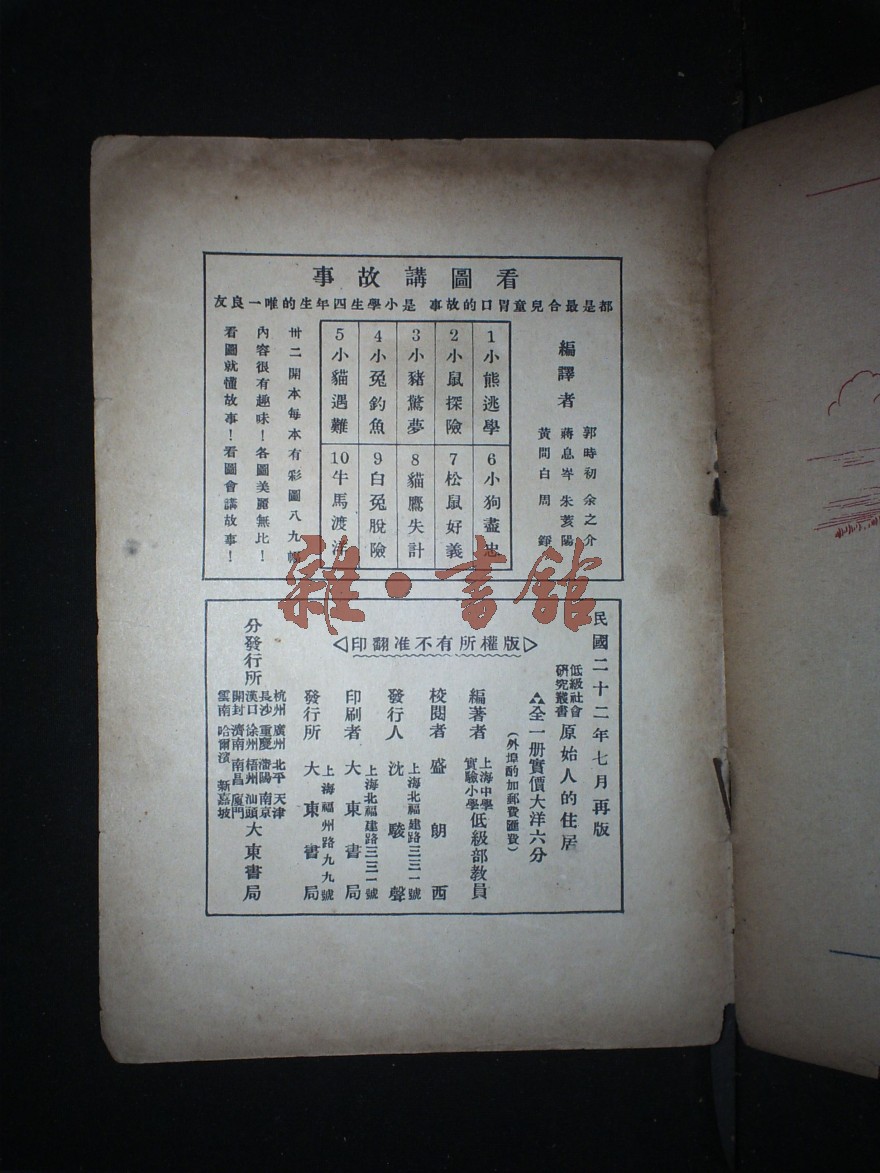 看圖講故事
都是最合兒童胃口的故事 是小學生四年生的唯一良友
編譯者
郭時初 余之介
蔣息岑 朱菱陽
黃問白 周錚
1 小熊逃學
2 小鼠探險
3 小豬驚夢
4 小兔釣魚
5 小貓遇難
6 小狗盡忠
7 松鼠好義
8 貓鷹失計
9 白兔脫險
10 牛馬渡洋
卅二開本每本有彩圖八九幅
內容很有趣味！各圖美麗無比！
看圖就懂故事！看圖會講故事！
雜·書館
民國二十二年七月再版
低級社會研究叢書 原始人的住居
全一册實價大洋六分
(外埠酌加郵費匯費)
版權所有不准翻印
編著者 上海中學實驗小學低級部教員
校閱者 盛朗西
發行人 沈駿聲 上海北福建路三三一號
印刷者 大東書局 上海北福建路三三一號
發行所 大東書局 上海福州路九九號
分發行所
杭州 廣州 北平 天津
長沙 重慶 瀋陽 南京
漢口 徐州 梧州 汕頭
開封 濟南 南昌 廈門
雲南 哈爾濱 新嘉坡
大東書局